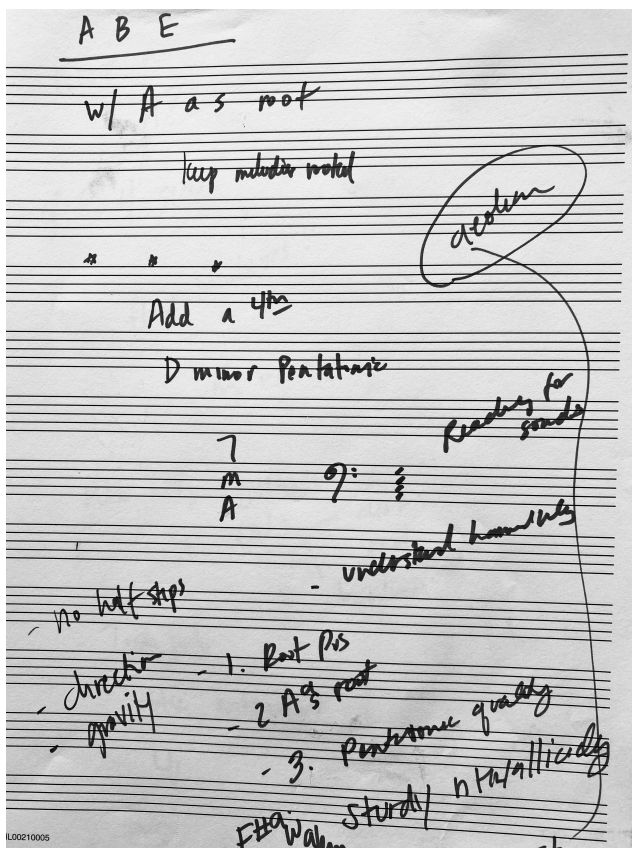 A B E
w/ A as root
keep melodies
aeolian
Add a 4th
D minor Pentatonic
Reaching for
sounds
7
m
A
understand harmonically
- no half steps
- direction
- gravity
- 1. Root Pos
- 2 A as root
- 3. Pentatonic quality
sturdy
L00210005